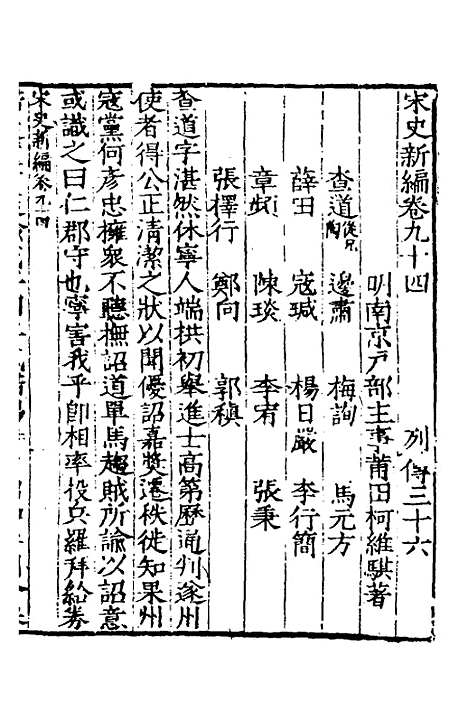 宋史新編卷九十四　列傳三十六
明南京戶部主事莆田柯維騏著
查道從兄陶　邊肅　梅詢　馬元方
薛田　寇瑊　楊日嚴　李行簡
章頻　陳琰　李宥　張秉
張擇行　鄭向　郭稹
查道字湛然休寧人端拱初舉進士高第歷通判遂州
使者得公正清潔之狀以聞優詔嘉奬遷秩徙知果州
寇黨何彥忠擁衆不聽撫詔道單馬趨賊所諭以詔意
或識之曰仁郡守也寧害我乎卽相率役兵羅拜給券
宋史新編卷九十四